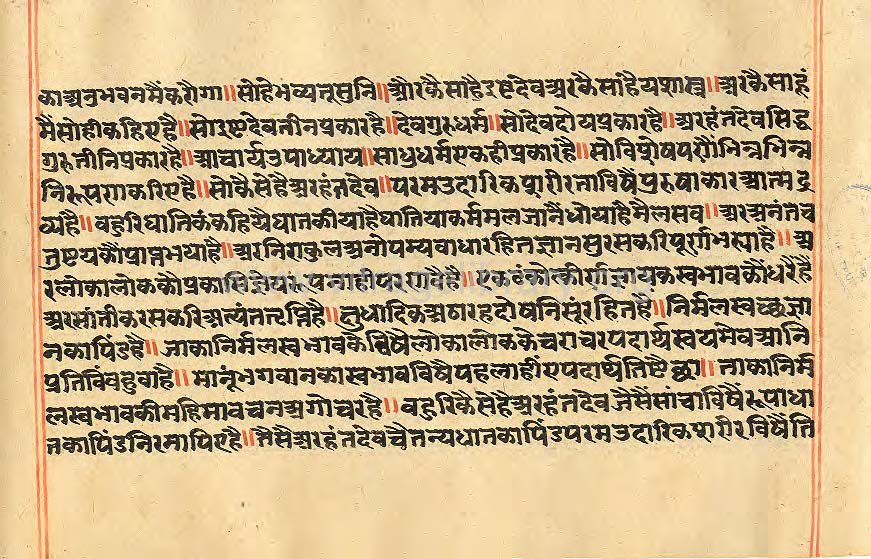 काअनुभवनमैंकरौगा॥सोहेभव्यनूसुनि॥औरकैसाहैइष्टदेवअरकैसांहैयशास्त्र॥अरकैसाहूं
मैंसोहीकहिएहै॥सोइष्टदेवतीनप्रकारहै॥देवगुरुधर्म॥सोदेवदोयप्रकारहै॥अरहंतदेवसिद्ध
गुरुतीनिप्रकारहै॥आचार्यउपाध्याय॥साधुधर्मएकहीप्रकारहै॥सोविशेषपणैंभिन्नभिन्न
निरूपणकरिएहै॥सोकैसेहैअरहंतदेव॥परमउदारिकशरीरताविषैंपुरुषाकारआत्मद्र
व्यहै॥बहुरिघातिकंकहियेघातकीयाहैघातियाकर्ममलजानैंधोयाहैमैलसव॥अरअनंतच
तुष्टयकौंप्राप्तभयाहै॥अरनिराकुलअनोपम्यवाधारहितज्ञानसुरसकरिपूर्णभस्याहै॥अ
रलोकालोककौप्रकासिज्ञेयरूपनाहीपरणवैहै॥एकटंकोत्कीर्णज्ञायकस्वभावकौंधरैहै
अरसांतीकरसकरिअत्यंततृप्तिहै॥क्षुधादिकअठारहदोषनिसूंरहितहै॥निर्मलस्वछज्ञा
नकापिंडहै॥जाकानिर्मलस्वभावकेविषैलोकालोककेचराचरपदार्थस्वयमेवआनि
प्रतिविंवहुवाहै॥मानूंभगवानकास्वभावविषैपहलाहींएपदार्थतिष्टैछा॥ताकानिर्म
लस्वभावकीमहिमावचनअगोचरहै॥बहुरिकैसेहैअरहंतदेवजैसैंसांचाविषैंरूपाधा
तकापिंडनिरमापिएहै॥तैसैअरहंतदेवचैतन्यधातकापिंडपरमउदारिकशरीरविषैंति